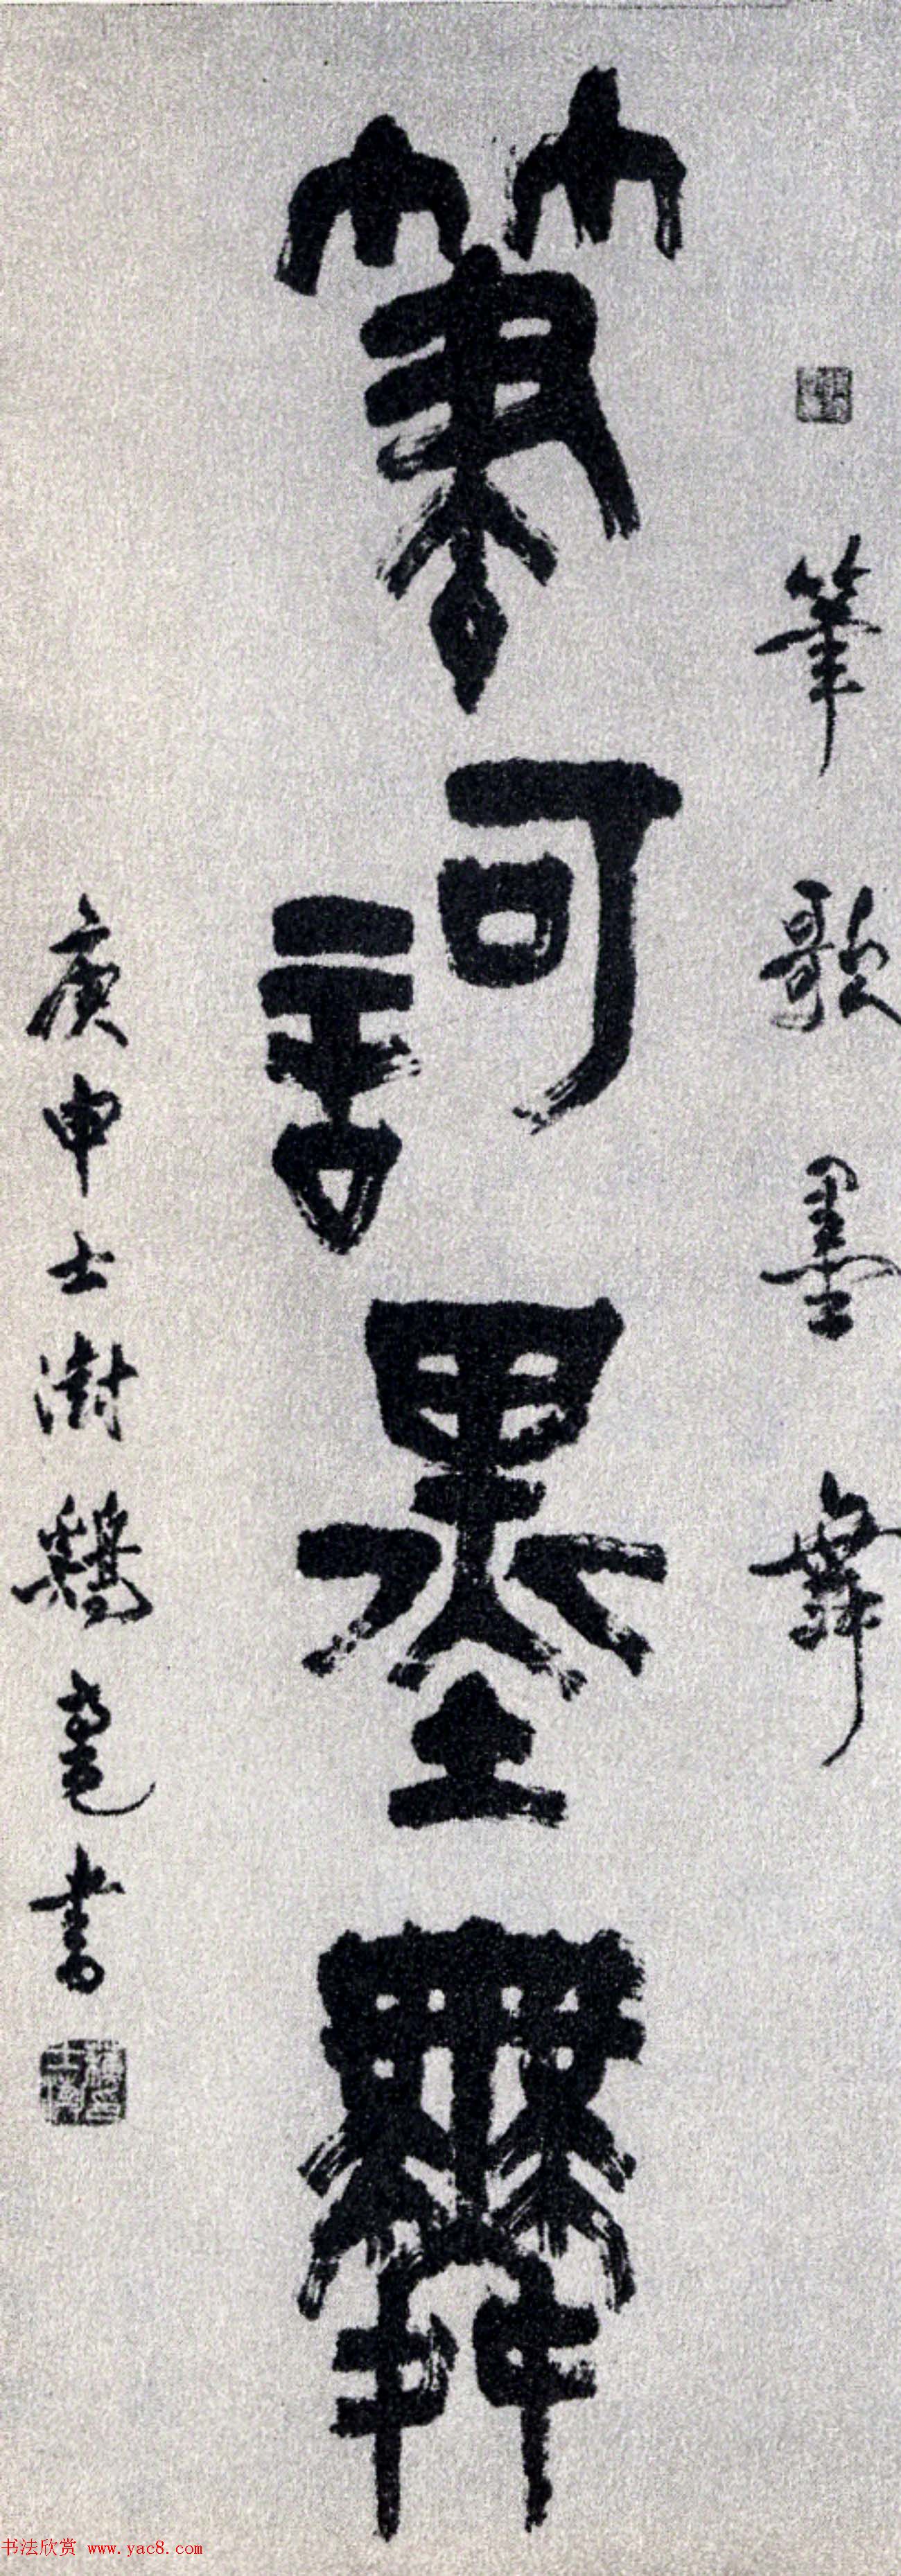 筆歌墨舞
筆訶墨舞
庚申士澍鷄毫書
书法欣赏 www.yac8.com